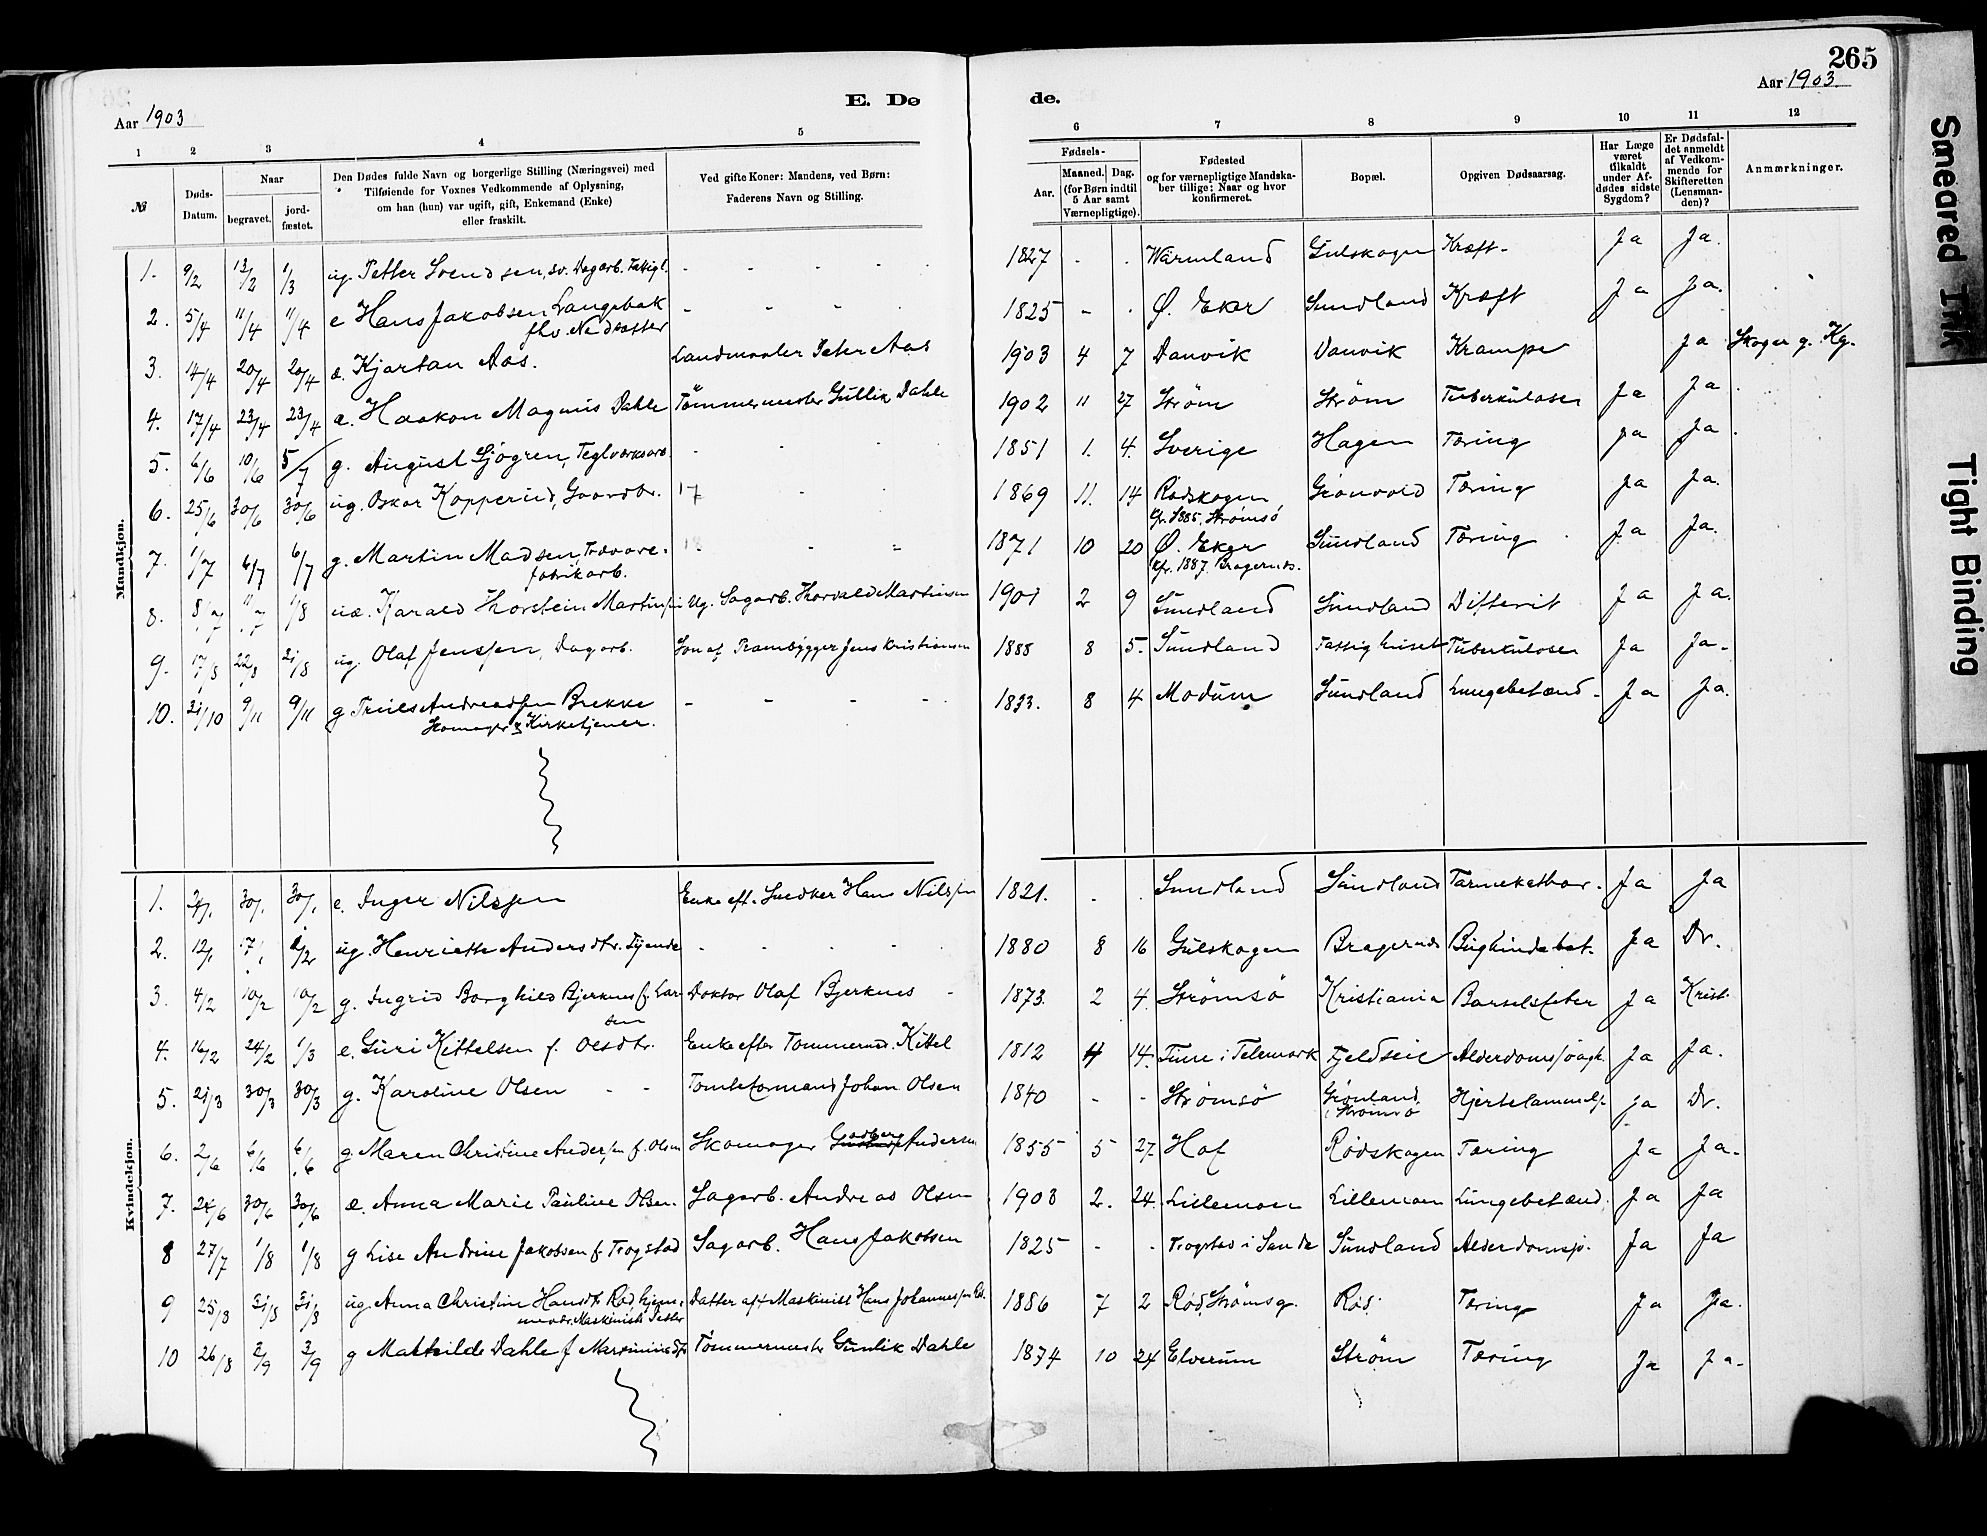 265
Aar 1903
E. Dø
de.
Aar 1903
1 2 3 4 5 6 7 8 9 10 11 12
№
Døds-Datum.
Naar
begravet.
jord-fæstet.
Den Dødes fulde Navn og borgerlige Stilling (Næringsvei) med
Tilføiende for Voxnes Vedkommende af Oplysning,
om han (hun) var ugift, gift, Enkemand (Enke)
eller fraskilt.
Ved gifte Koner: Mandens, ved Børn:
Faderens Navn og Stilling.
Fødsels-
Aar.
Maaned. Dag.
(for Børn indtil
5 Aar samt
Værnepligtige).
Fødested
og for værnepligtige Mandska-
ber tillige: Naar og hvor
konfirmeret.
Bopæl.
Opgiven Dødsaarsag.
Har Læge
været
tilkaldt
under Af-
dødes sidste
Sygdom?
Er Dødsfal-
det anmeldt
af Vedkom-
mende for
Skifteretten
(Lensman-
den)?
Anmærkninger.
Mandkjøn.
1. 9/2 13/2 1/3 ug. Petter Svendsen, sv. Dagarb. Fattigl. - - - - 1827 - - Wärmland Gulskogen Kræft - Ja Ja.
2. 5/4 11/4 11/4 e Hans Jakobsen Langebak - - - 1825 - - Ø. Eker Sundland Kræft Ja Ja.
fhv.
3. 14/4 20/4 20/4 æ. Kjartan Aas. Landmaaler Peter Aas 1903 4 7 Danvik Danvik Krampe Ja Skoger g. Kg.
4. 17/4 23/4 23/4 æ. Haakon Magnus Dahle Tömmermester Gullik Dahle 1902 11 27 Strøm Strøm Tuberkulose Ja Ja
5. 6/6 10/6 5/7 g. August Sjögren, Teglværksarb. - - - 1851 1. 4. Sverige Hagen Tæring Ja Ja
6. 25/6 30/6 30/6 ug. Oskar Kopperud, Gaardbr. 17 - - 1869 11. 14 Rødskogen Grönvold Tæring Ja Ja.
Kf. 1885, Strømsö
7. 1/7 6/7 6/7 g. Martin Madsen, Trævare- - - 1871 10 20 Ø. Eker Sundland Tæring Ja Ja.
fabrikarb. Kf. 1887 Bragernes.
8. 8/7 11/7 1/8 uæ. Harald Thorstein Martinsen Ug. Sagarb. Thorvald Martinsen 1901 2 9 Sundland Sundland Difterit Ja Ja.
9. 17/8 22/8 21/8 ug. Olaf Jenssen, Dagarb. Søn af Prambygger Jens Kristiansen 1888 8 5. Sundland Fattighuset Tuberkulose Ja Ja.
10. 31/10 9/11 9/11 g Truls Andreassen Brekke - - - - 1833. 8 4 Modum Sundland Lungebetænd- Ja Ja.
Skomager & Kirketjener.
Kvindekjøn.
1. 30/1 30/1 e. Inger Nilssen Enke eft. Snedker Hans Nilssen 1821. - - Sundland Sundland Tarmekathar. Ja Ja
2. 12/1 17/1 ug. Henriette Andersdtr. Tjende - - - - 1880 8 16 Gulskogen Bragernes Bughindebet. Ja Dr.
3. 4/2 10/2 10/2 g. Ingrid Borghild Bjerknes f. Lar- Doktor Olaf Bjerknes - 1873. 2 4. Strømsö Kristiania Barselsfeber Ja Krist.
sen
4. 16/2 24/2 1/3 e. Guri Kittelsen f. Olsdtr. Enke efter Tømmermd. Kittel 1812 4 14. Tinn i Telemark Fjeldseie Alderdomssvagh. Ja Ja.
5. 21/3 30/3 30/3 g. Karoline Olsen - - Tomteformand Johan Olsen 1840 - - Strømsö Grønland i Strømsö Hjertelammelse Ja Dr.
6. 2/6 6/6 6/6 g. Maren Christine Anderssen f. Olsen Skomager Andersen 1855 5 27. Hof Rødskogen Tæring Ja Ja.
7. 24/6 30/6 30/6 æ. Anna Marie Pauline Olsen. Sagarb. Andreas Olsen 1903 2. 24. Lillemoen Lillemoen Lungebetænd. Ja Ja
8 27/7 1/8 1/8 g Lise Andrine Jakobsen f. Trogstad Sagarb. Hans Jakobsen 1825 - - Trogstad i Sande Sundland Alderdomssv. Ja Ja
9 25/8 31/8 31/8 ug. Anna Christine Hansdtr. Rød hjemme- Datter af Maskinist Hans Johannessen Rød. 1886 7 2 Rød, Strømsg. Rød. Tæring Ja Ja.
10 26/8 2/9 2/9 g Mathilde Dahle f Martiniusdtr. Tömmermester Gunlik Dahle 1874 10 24 Elverum Strøm Tæring Ja Ja.
Smeared Ink
Tight Binding